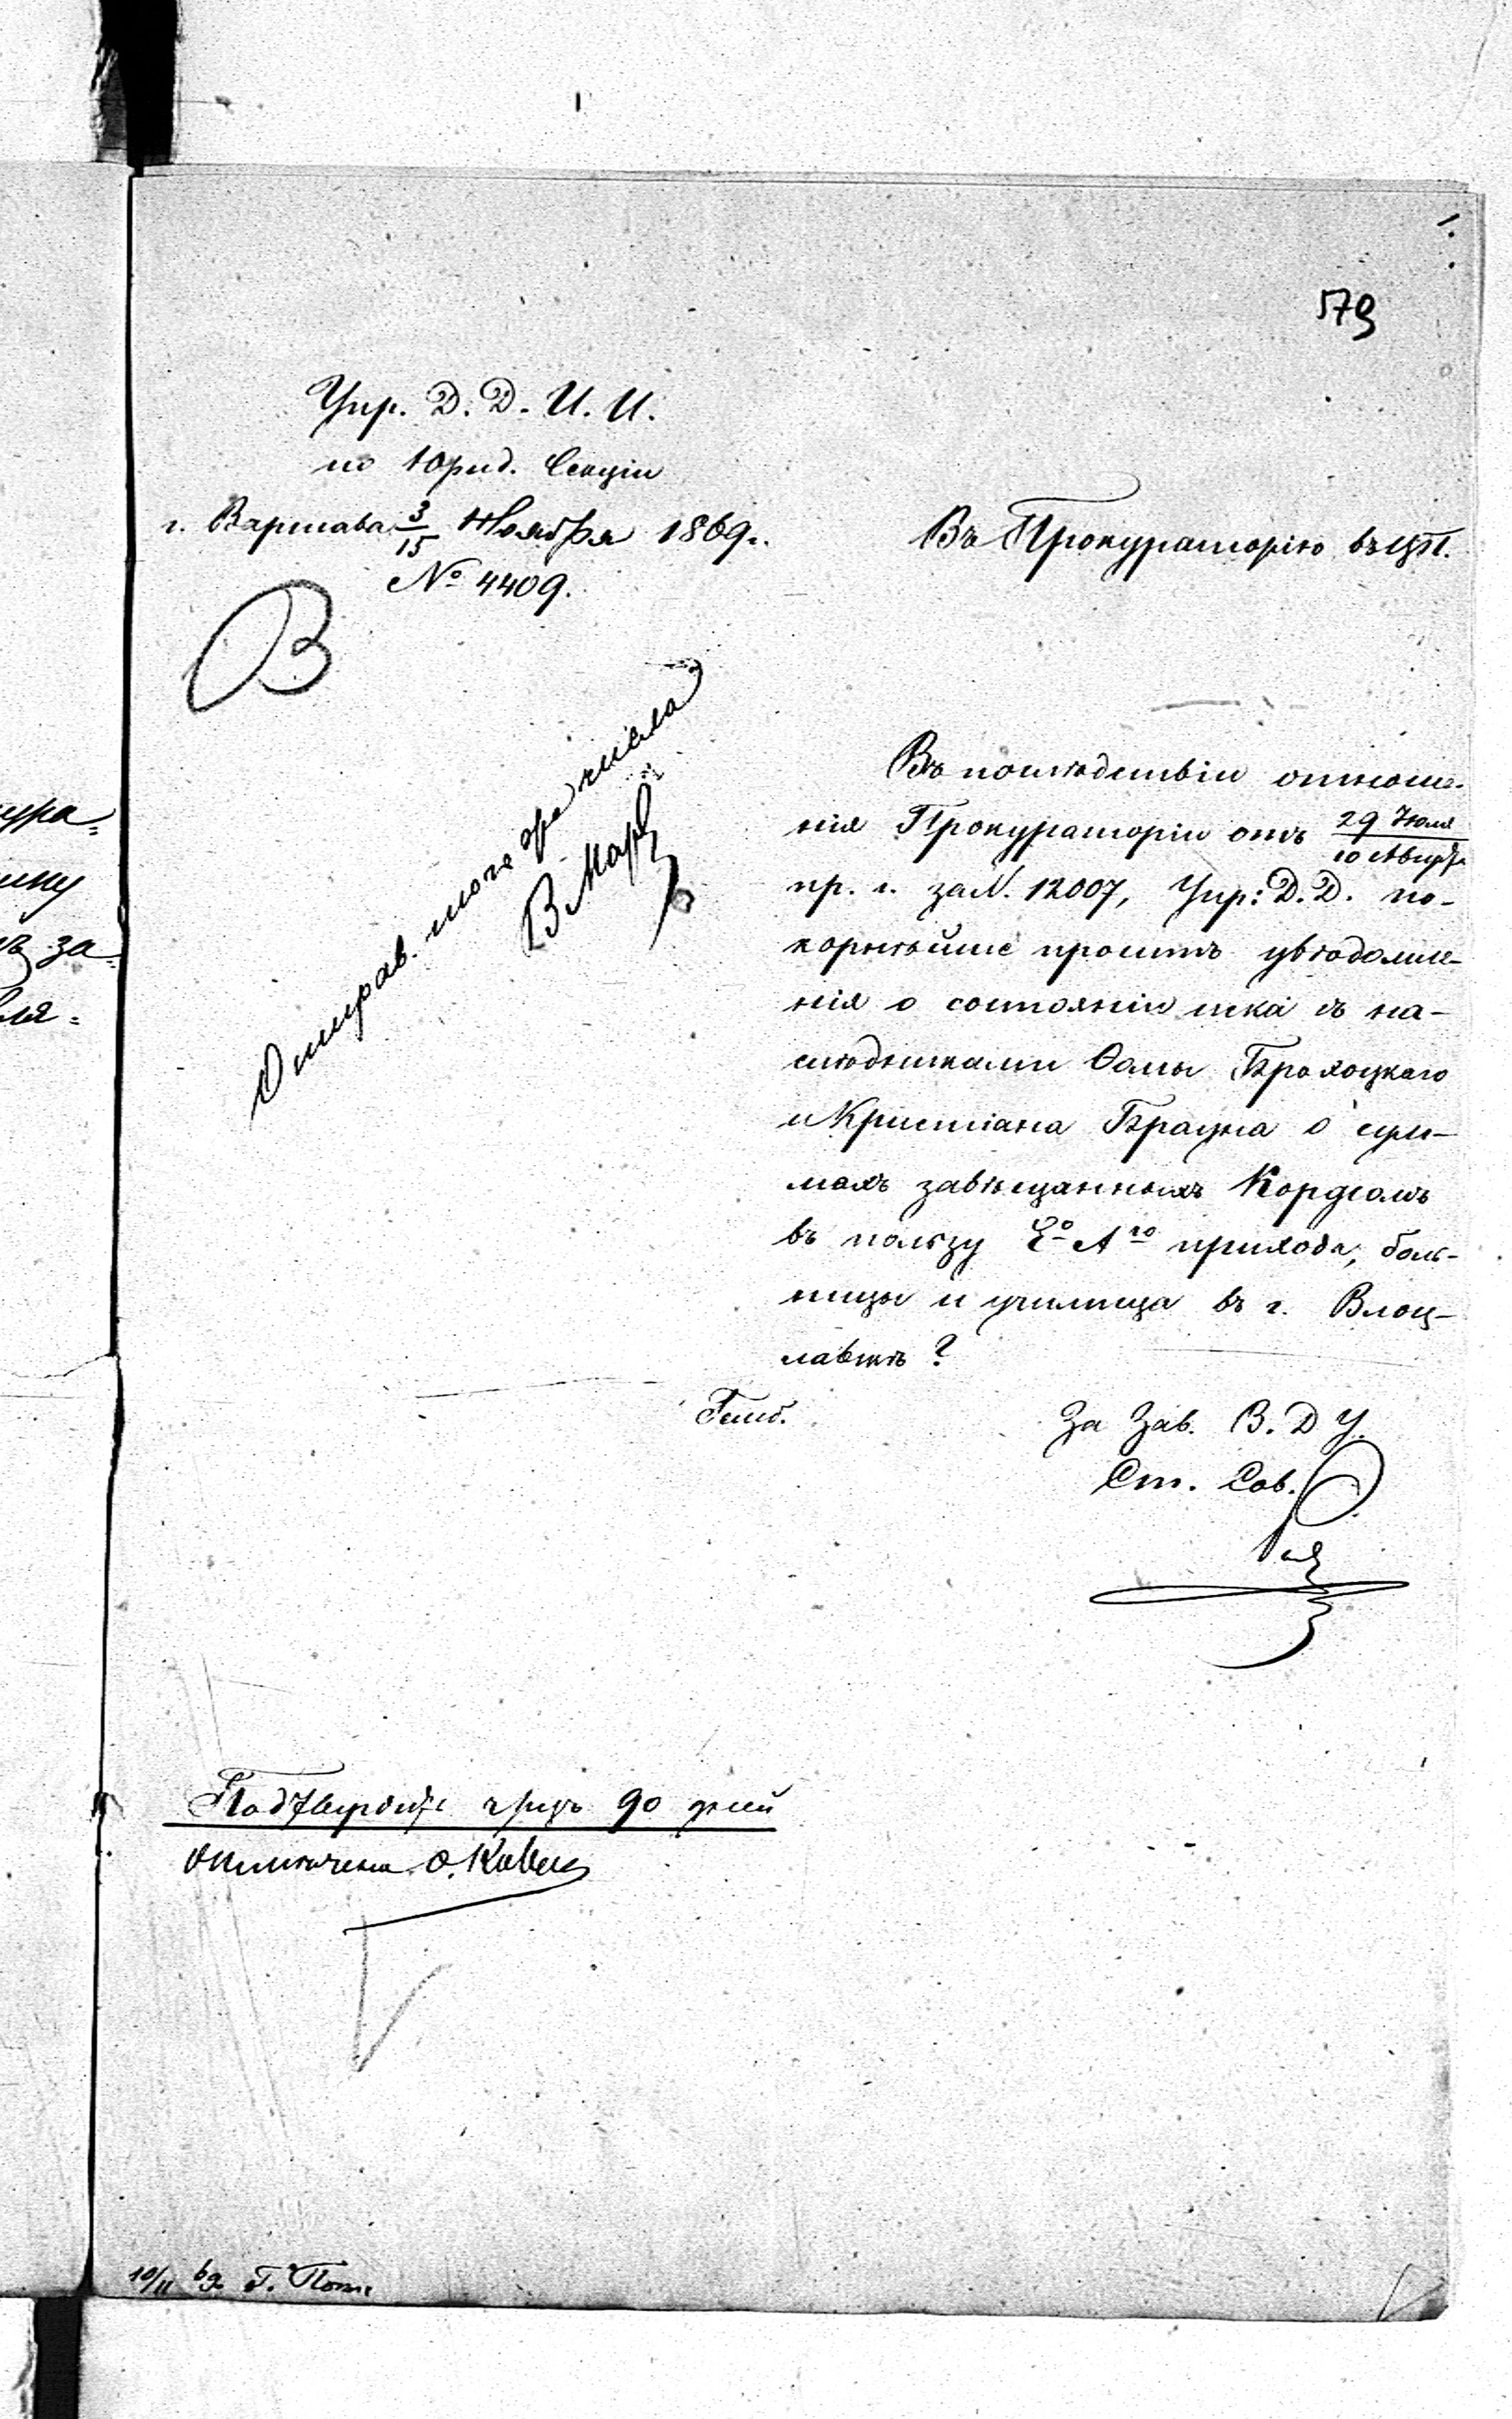 579
Упр. Д. Д. И. И.
по Юрид. Секціи
г. Варшава 3/15 Ноября 1869 г.
№ 4409.
В
Въ Прокураторію въ ЦП.
Отправ. того же числа
В Мар
Въ послѣдствіи отноше-
нія Прокураторіи отъ 29 Іюля
10 Август
пр. г. за N. 12007, Упр: Д. Д. по-
корнѣйше проситъ увѣдомле-
нія о состояніи иска съ на-
слѣдниками Ѳомы Брохоцкаго
и Христіана Брауна о сум-
махъ завѣщанныхъ Кордеомъ
въ пользу Ео Аго прихода, боль-
ницы и училища въ г. Влоц-
лавкѣ?
За Зав. В. Д У.
Ст. Сов.
Подтвердить чрезъ 90 дней
10/11 69 Г.
ура=
ину
ъ за=
ля=